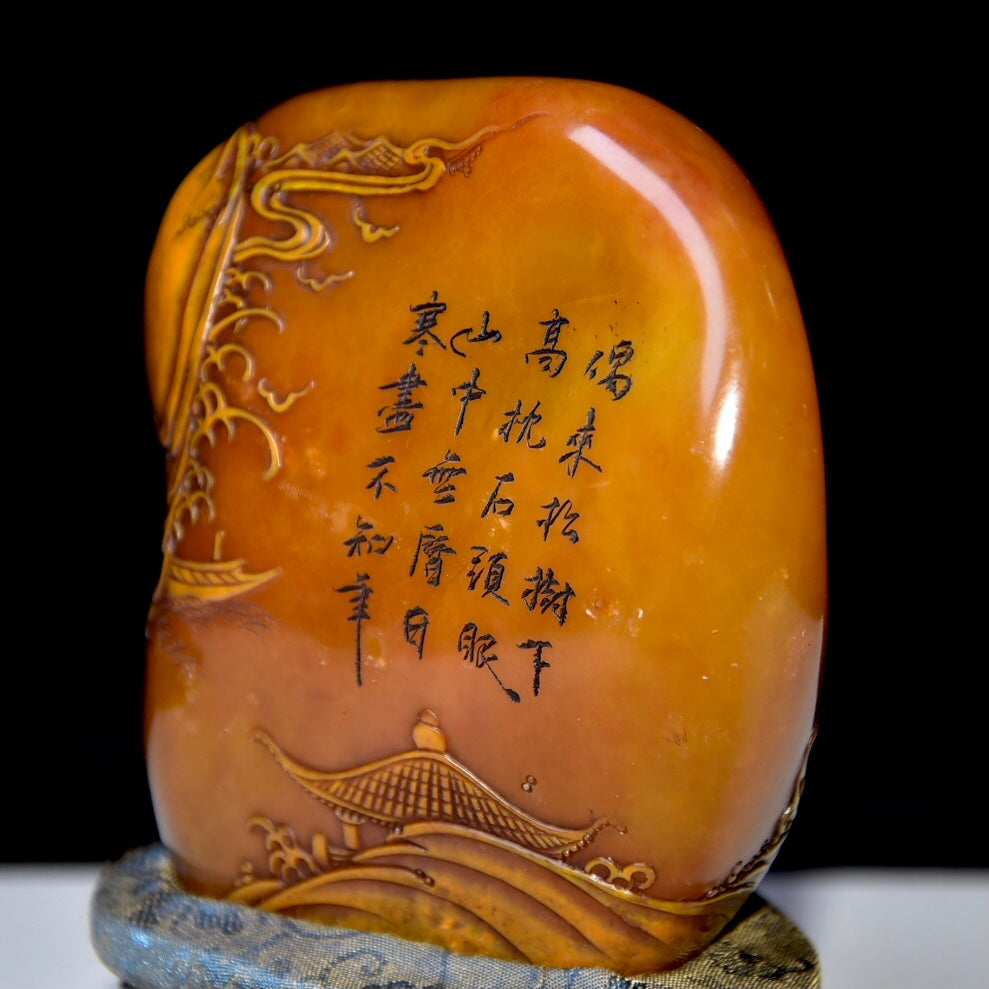 偶來松樹下
高枕石頭眠
山中無曆日
寒盡不知年